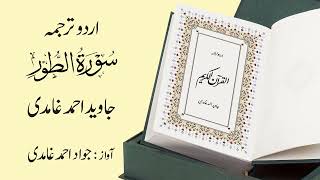 اردو ترجمہ
سُوْرَةُ الطُّوْر
جاوید احمد غامدی
آواز: جواد احمد غامدی
القرآن الکریم
جاوید احمد غامدی